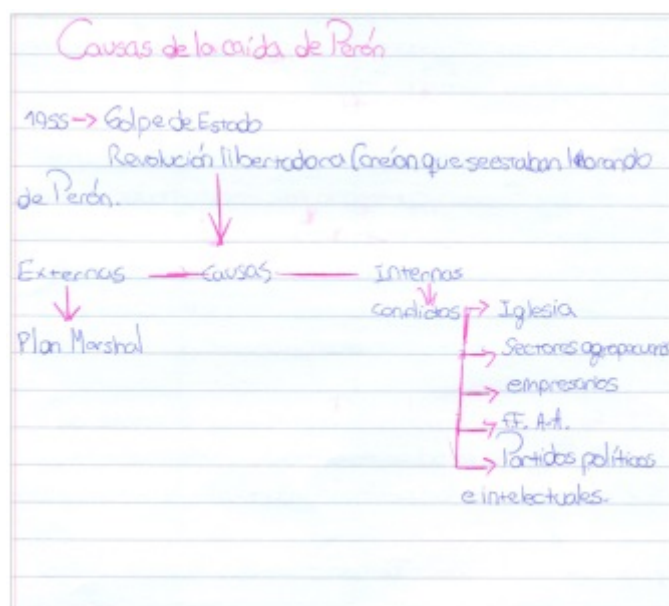 Causas de la caída de Perón
1955 → Golpe de Estado
Revolución libertadora (creían que se estaban librando
de Perón.
Externas — Causas — Internas
Plan Marshal
Iglesia
Sectores agropecuarios
empresarios
FF. A.A.
Partidos políticos
e intelectuales.